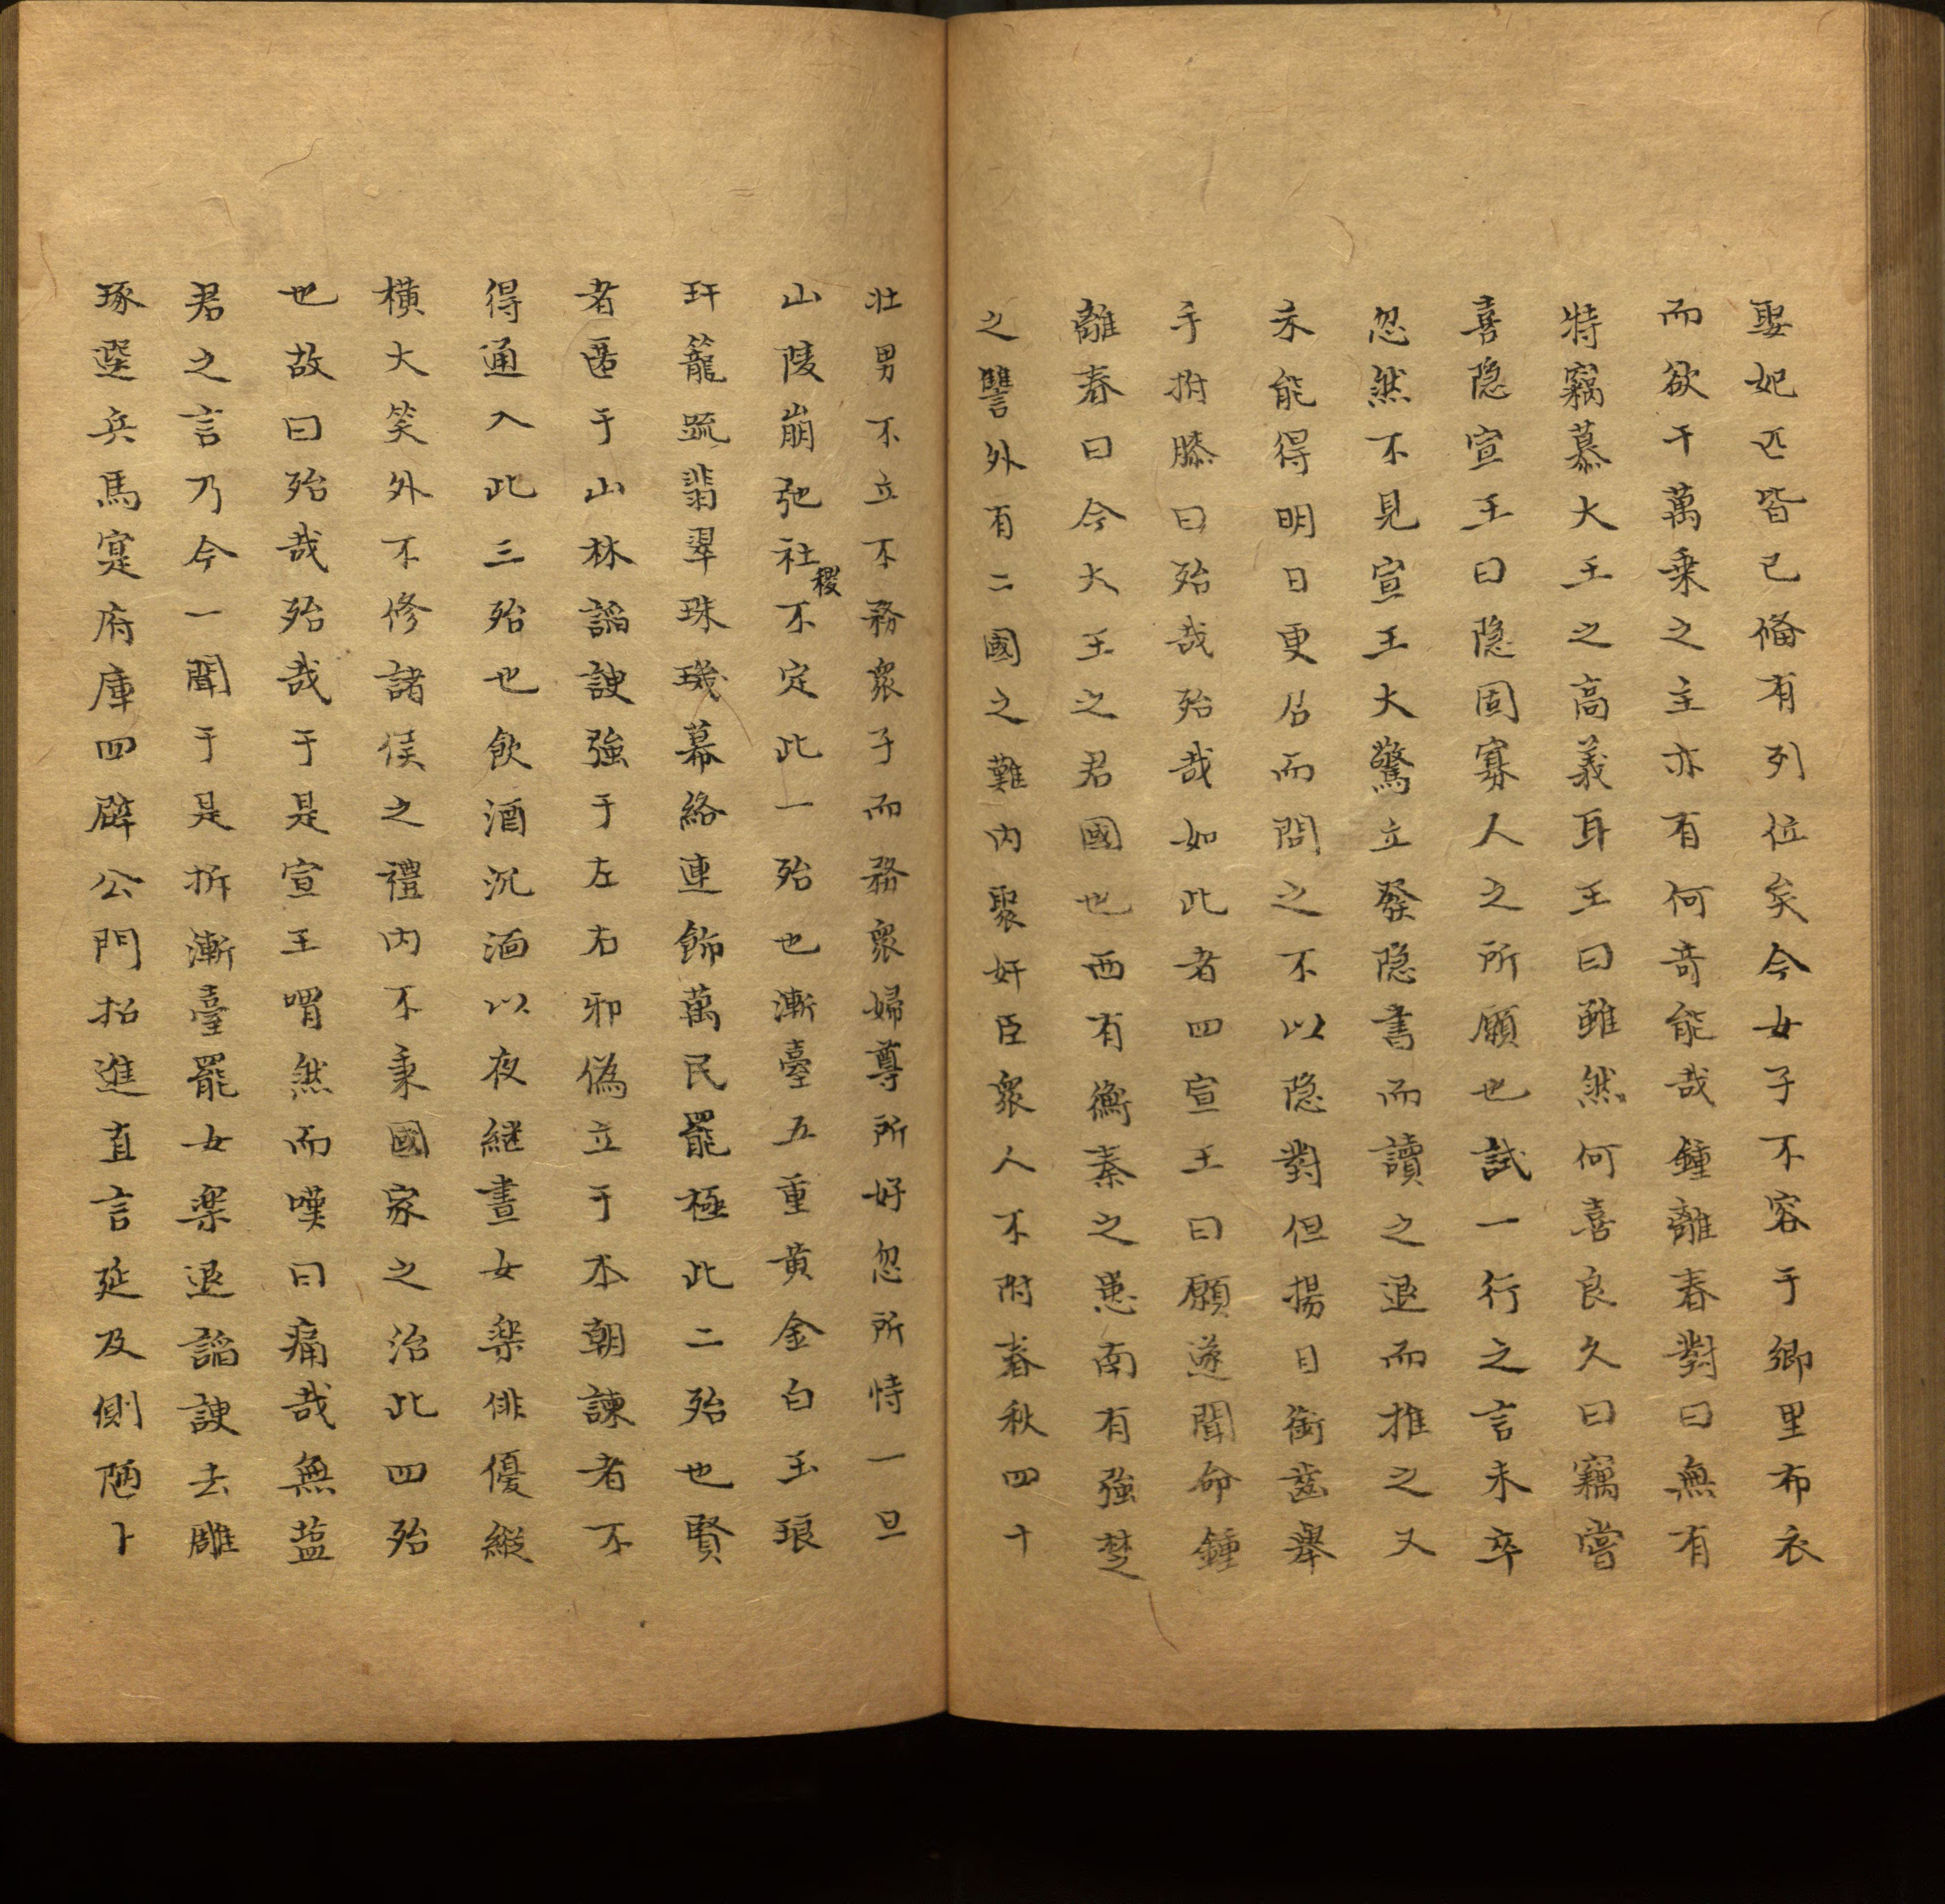 娶妃匹皆已俻有列位矣今女子不容于鄉里布衣
而欲干萬乗之主亦有何竒能哉鍾離春對曰無有
特竊慕大王之高義耳王曰雖然何喜良久曰竊嘗
喜隐宣王曰隐固寡人之所願也試一行之言未卒
忽然不見宣王大驚立發隐書而讀之退而推之又
未能得明日更召而問之不以隐對但揚目銜齒舉
手拊膝曰殆哉殆哉如此者四宣王曰願遂聞命鍾
離春曰今大王之君國也西有衡秦之患南有強楚
之讐外有二國之難内聚奸臣衆人不附春秋四十
壮男不立不務衆子而務衆婦尊所好忽所恃一旦
山陵崩弛社稷不定此一殆也漸臺五重黄金白玉琅
玕籠疏翡翠珠璣幕絡連飾萬民罷極此二殆也賢
者匿于山林謟諛強于左右邪偽立于本朝諫者不
得通入此三殆也飲酒沉湎以夜継晝女楽俳優縦
横大笑外不修諸侯之禮内不秉國家之治此四殆
也故曰殆哉殆哉于是宣王喟然而嘆曰痛哉無塩
君之言乃今一聞于是拆漸臺罷女楽退謟諛去雕
琢選兵馬寔府庫四辟公門招進直言延及側陋卜